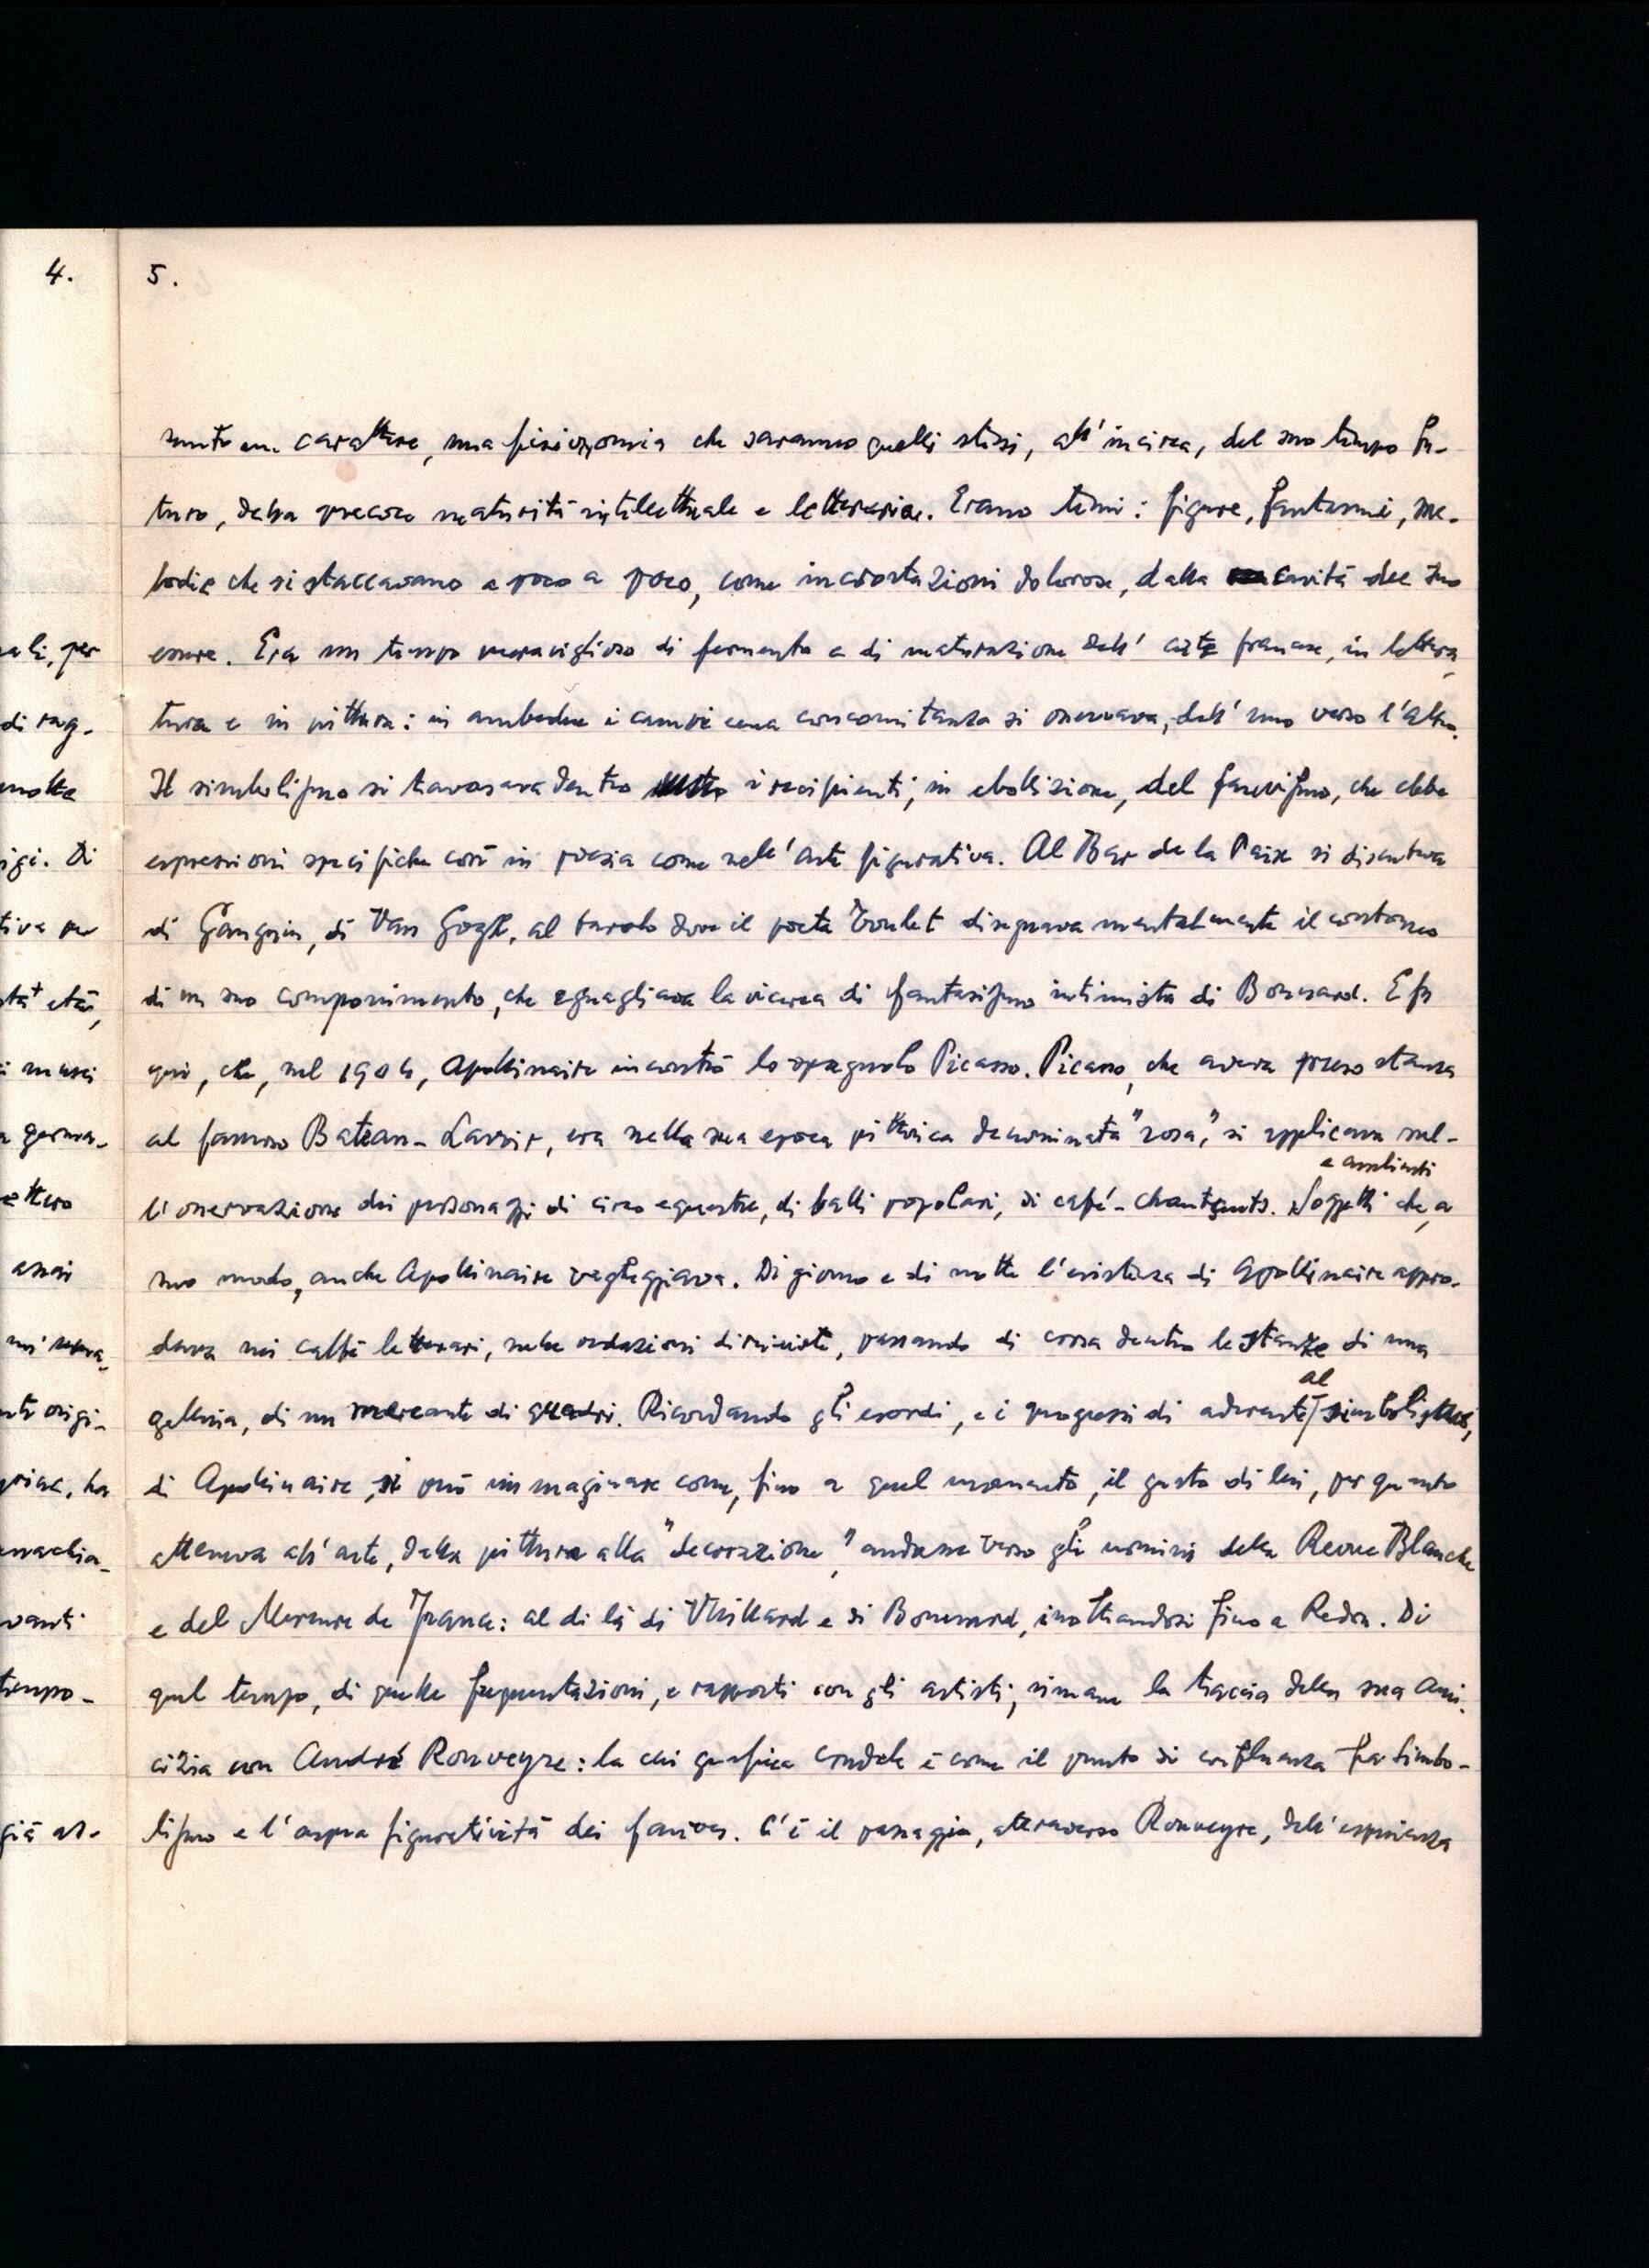 4.
ali, per
di rag-
molte
igi. Di
tiva per
età,
i musei
germa-
ettero
assai
origi-
ha
vanti
tempo-
già as-
5.
sunto un carattere, una fisionomia che saranno quelli stessi, all'incirca, del suo tempo fu-
turo, della precoce maturità intellettuale e letteraria. Erano temi: figure, fantasmi, me-
lodie che si staccavano a poco a poco, come incrostazioni dolorose, dalla cavità del suo
cuore. Era un tempo meraviglioso di fermento e di maturazione dell'arte francese, in lettera-
tura e in pittura: in ambedue i campi una concomitanza si osservava, dell'uno verso l'altro.
Il simbolismo si travasava dentro i recipienti, in ebollizione, del fauvismo, che ebbe
espressioni specifiche così in poesia come nell'arte figurativa. Al Bar de la Paix si discuteva
di Gauguin, di Van Gogh, al tavolo dove il poeta Toulet disegnava mentalmente il contorno
di un suo componimento, che eguagliava la ricerca di fantasismo intimista di Bonnard. E fu
qui, che, nel 1904, Apollinaire incontrò lo spagnolo Picasso. Picasso, che aveva preso stanza
al famoso Bateau-Lavoir, era nella sua epoca pittorica denominata "rosa," si applicava sul-
l'osservazione dei personaggi di circo equestre, di balli popolari, di café-chantants. Soggetti e ambienti che, a
suo modo, anche Apollinaire vagheggiava. Di giorno e di notte l'esistenza di Apollinaire appro-
dava nei caffè letterari, nelle redazioni di riviste, passando di corsa dentro le stanze di una
galleria, di un mercante di quadri. Ricordando gli esordi, e i progressi di aderente al simbolismo,
di Apollinaire, si può immaginare come, fino a quel momento, il gusto di lui, per quanto
atteneva all'arte, dalla pittura alla "decorazione," andasse verso gli uomini della Revue Blanche
e del Mercure de France: al di là di Vuillard e di Bonnard, inoltrandosi fino a Redon. Di
quel tempo, di quelle frequentazioni, e rapporti con gli artisti, rimane la traccia della sua ami-
cizia con André Rouveyre: la cui grafica crudele è come il punto di confluenza fra simbo-
lismo e l'aspra figuratività dei fauves. C'è il passaggio, attraverso Rouveyre, dell'esperienza